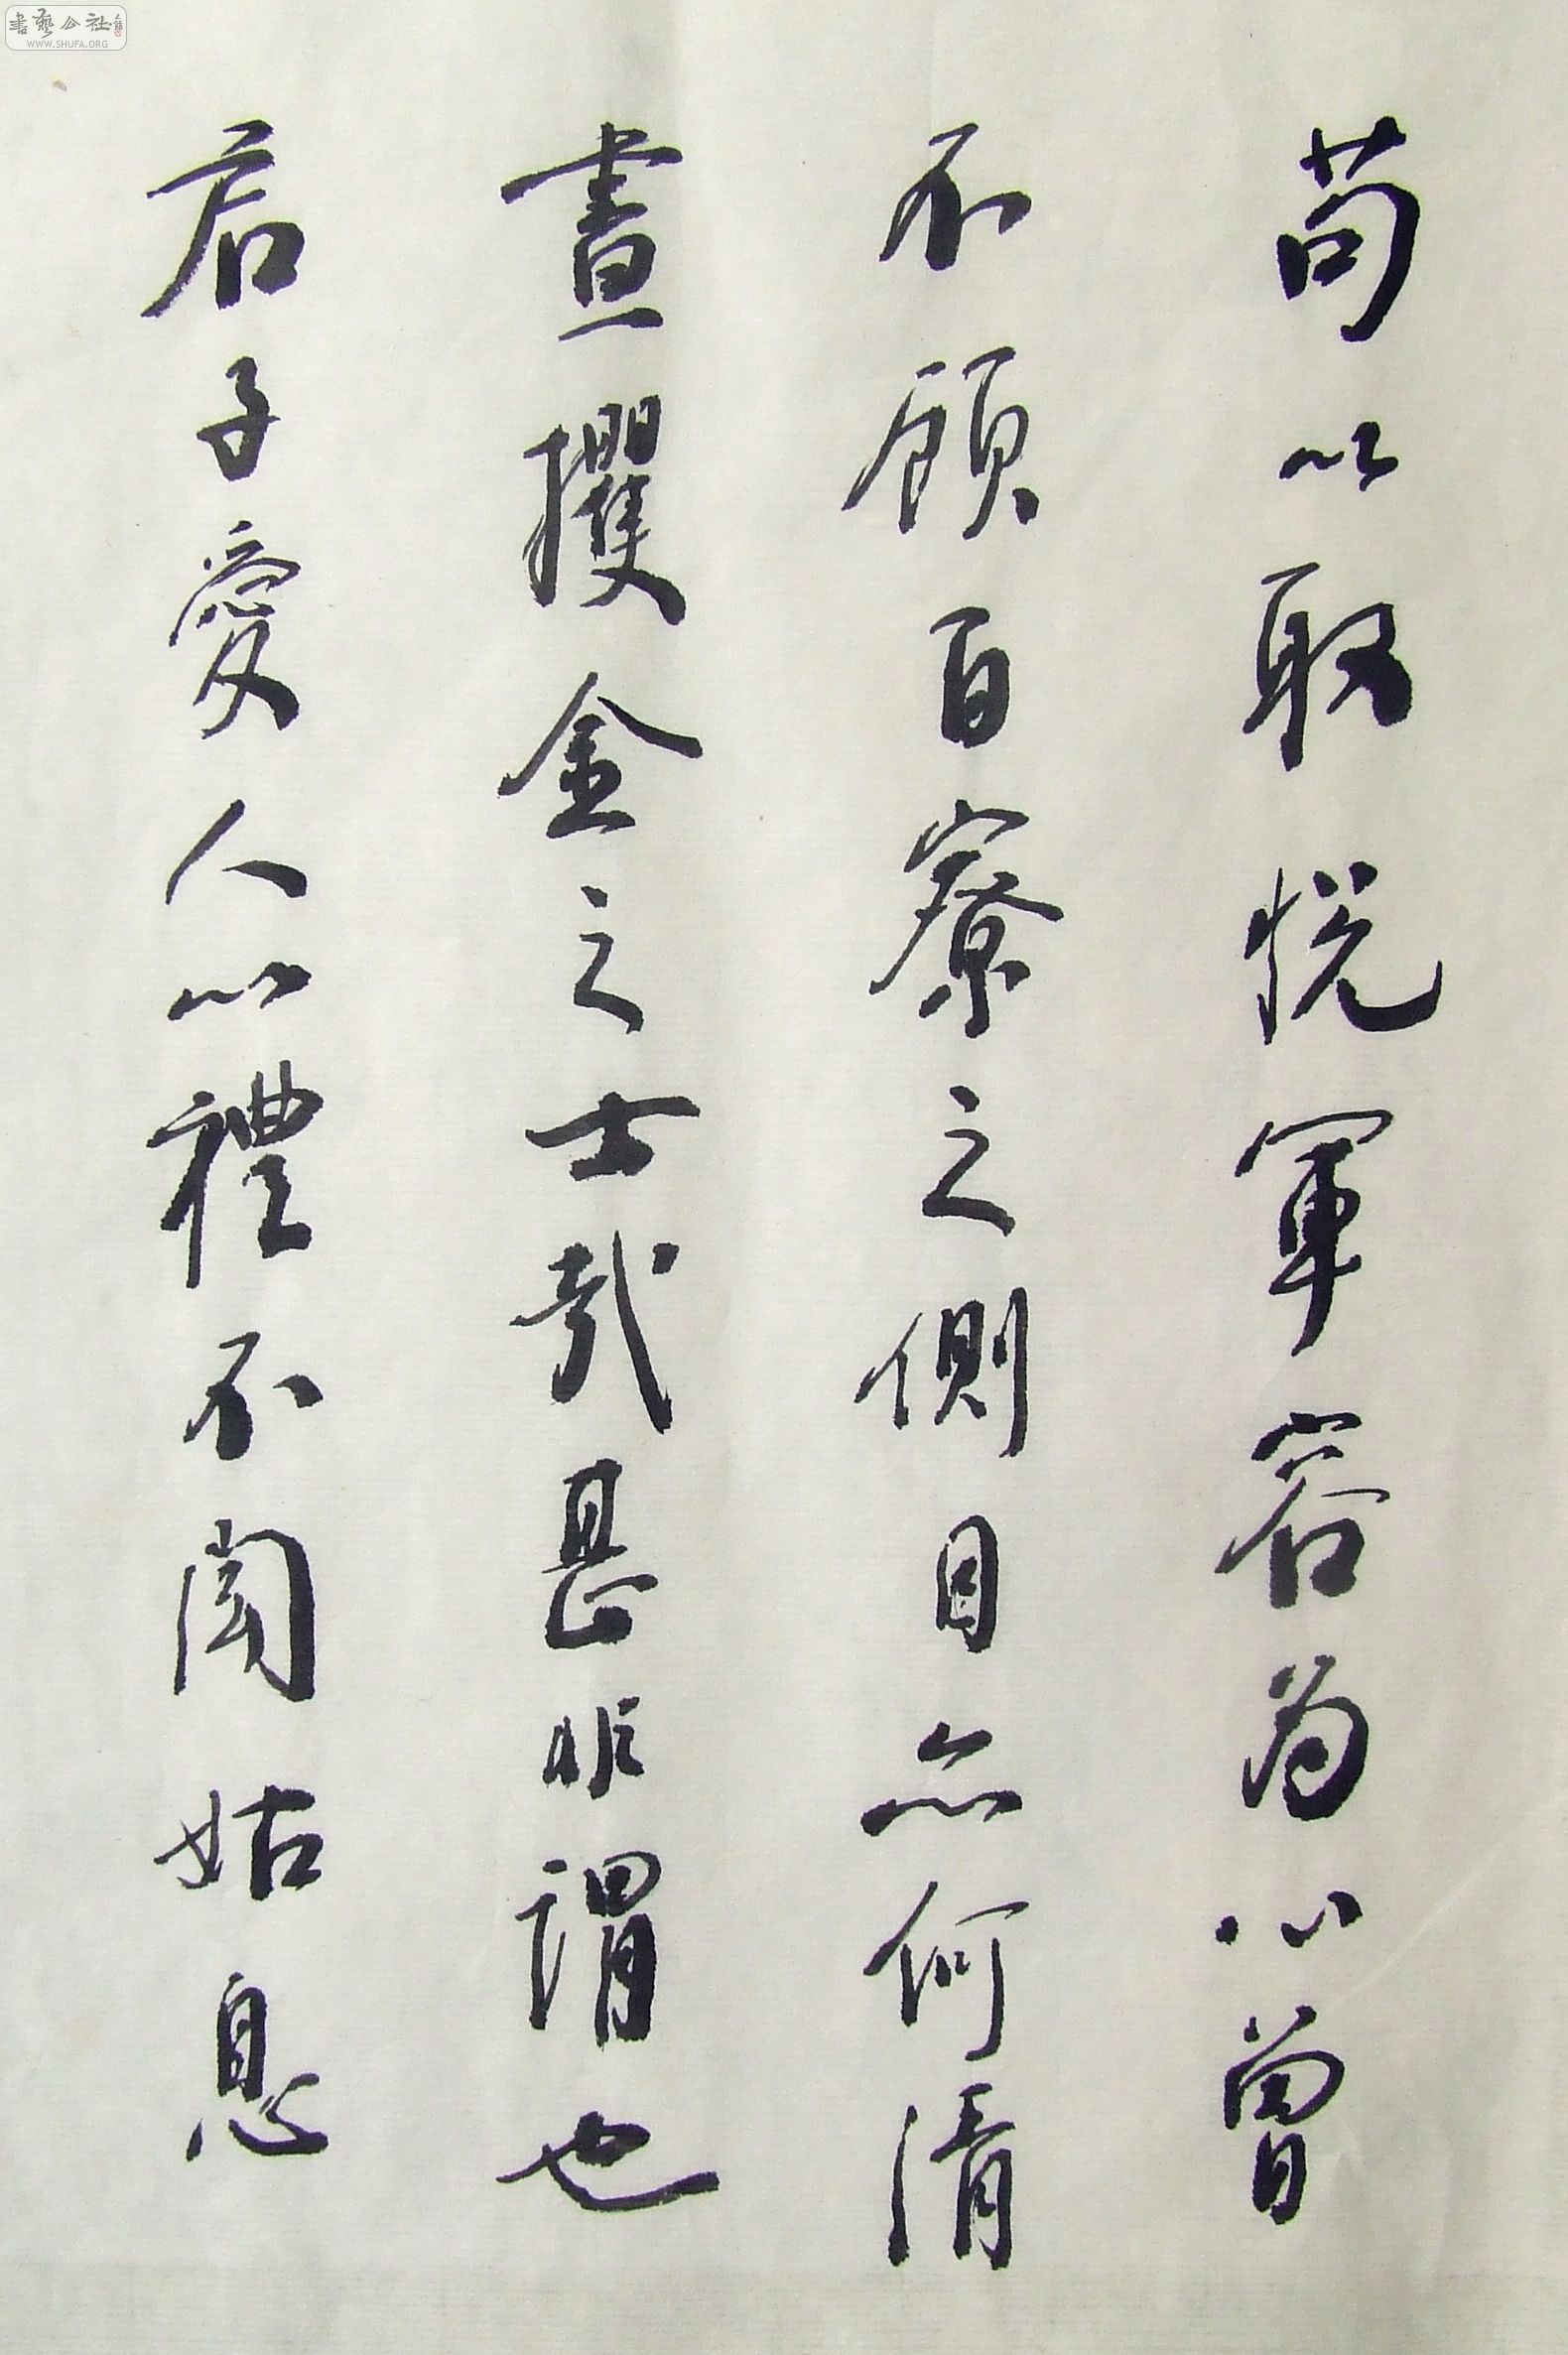 苟以取悦軍容為心曾
不顧百寮之側目亦何清
晝攫金之士哉甚非謂也
君子愛人以禮不聞姑息
書藝公社
WWW.SHUFA.ORG